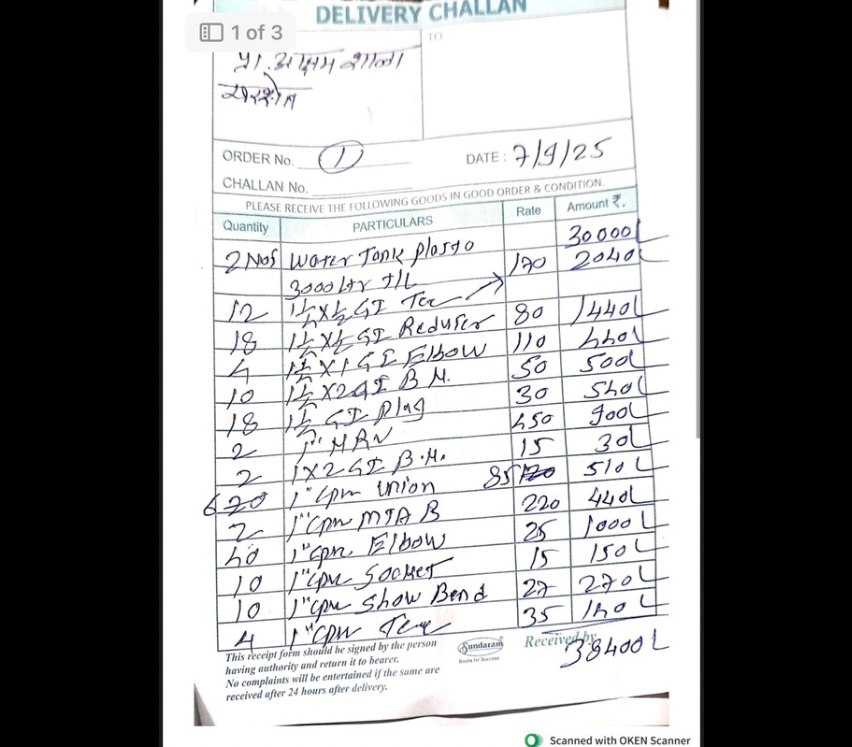 1 of 3
DELIVERY CHALLAN
TO
प्रा. आश्रम शाला
ORDER No. 1
DATE: 7/9/25
CHALLAN No.
PLEASE RECEIVE THE FOLLOWING GOODS IN GOOD ORDER & CONDITION.
Quantity PARTICULARS Rate Amount ₹.
2 Nos Water Tank plasto 30000
3000 Ltr 170 2040
12 1½x½ GI Tee
18 1½x½ GI Reduser 80 1440
4 1½x1 GI Elbow 110 440
10 1½x2 GI B.N. 50 500
18 1½ GI Plug 30 540
2 1" NRV 450 900
2 1x2 GI B.N. 15 30
6 1" cpvc union 85 510
2 1" cpvc MTAB 220 440
40 1" cpvc Elbow 25 1000
10 1" cpvc Socket 15 150
10 1" cpvc Show Bend 27 270
4 1" cpvc Tee 35 140
This receipt form should be signed by the person
having authority and return it to bearer.
No complaints will be entertained if the same are
received after 24 hours after delivery.
Sundaram
Books for Success
Received by
38400
Scanned with OKEN Scanner